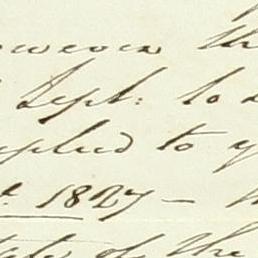 however th
Sept: to
replied to y
1827 — 
of the